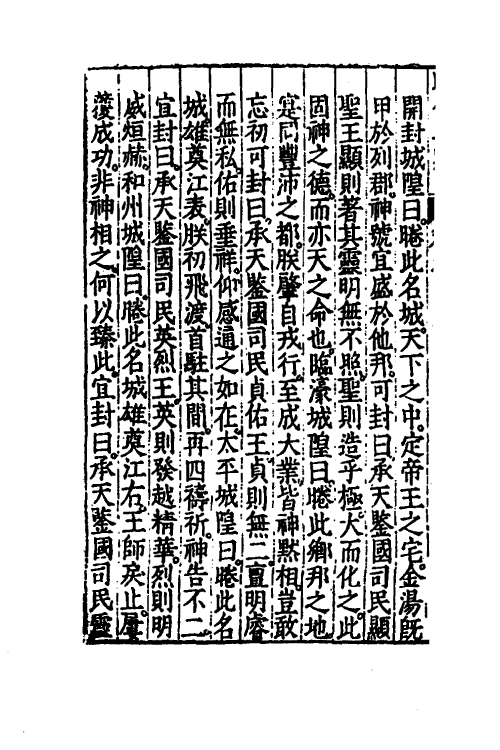 開封城隍曰睠此名城天下之中定帝王之宅金湯旣
甲於列郡神號宜盛於他邦可封曰承天鑒國司民顯
聖王顯則著其靈明無不照聖則造乎極大而化之此
固神之德而亦天之命也臨濠城隍曰睠此鄉邦之地
寔同豐沛之都朕肇自戎行至成大業皆神黙相豈敢
忘初可封曰承天鑒國司民貞佑王貞則無二亶明睿
而無私佑則垂祥仰感通之如在太平城隍曰睠此名
城雄奠江表朕初飛渡首駐其間再四禱祈神告不二
宜封曰承天鑒國司民英烈王英則發越精華烈則明
威烜赫和州城隍曰睠此名城雄奠江右王師戾止屢
獲成功非神相之何以臻此宜封曰承天鑒國司民靈